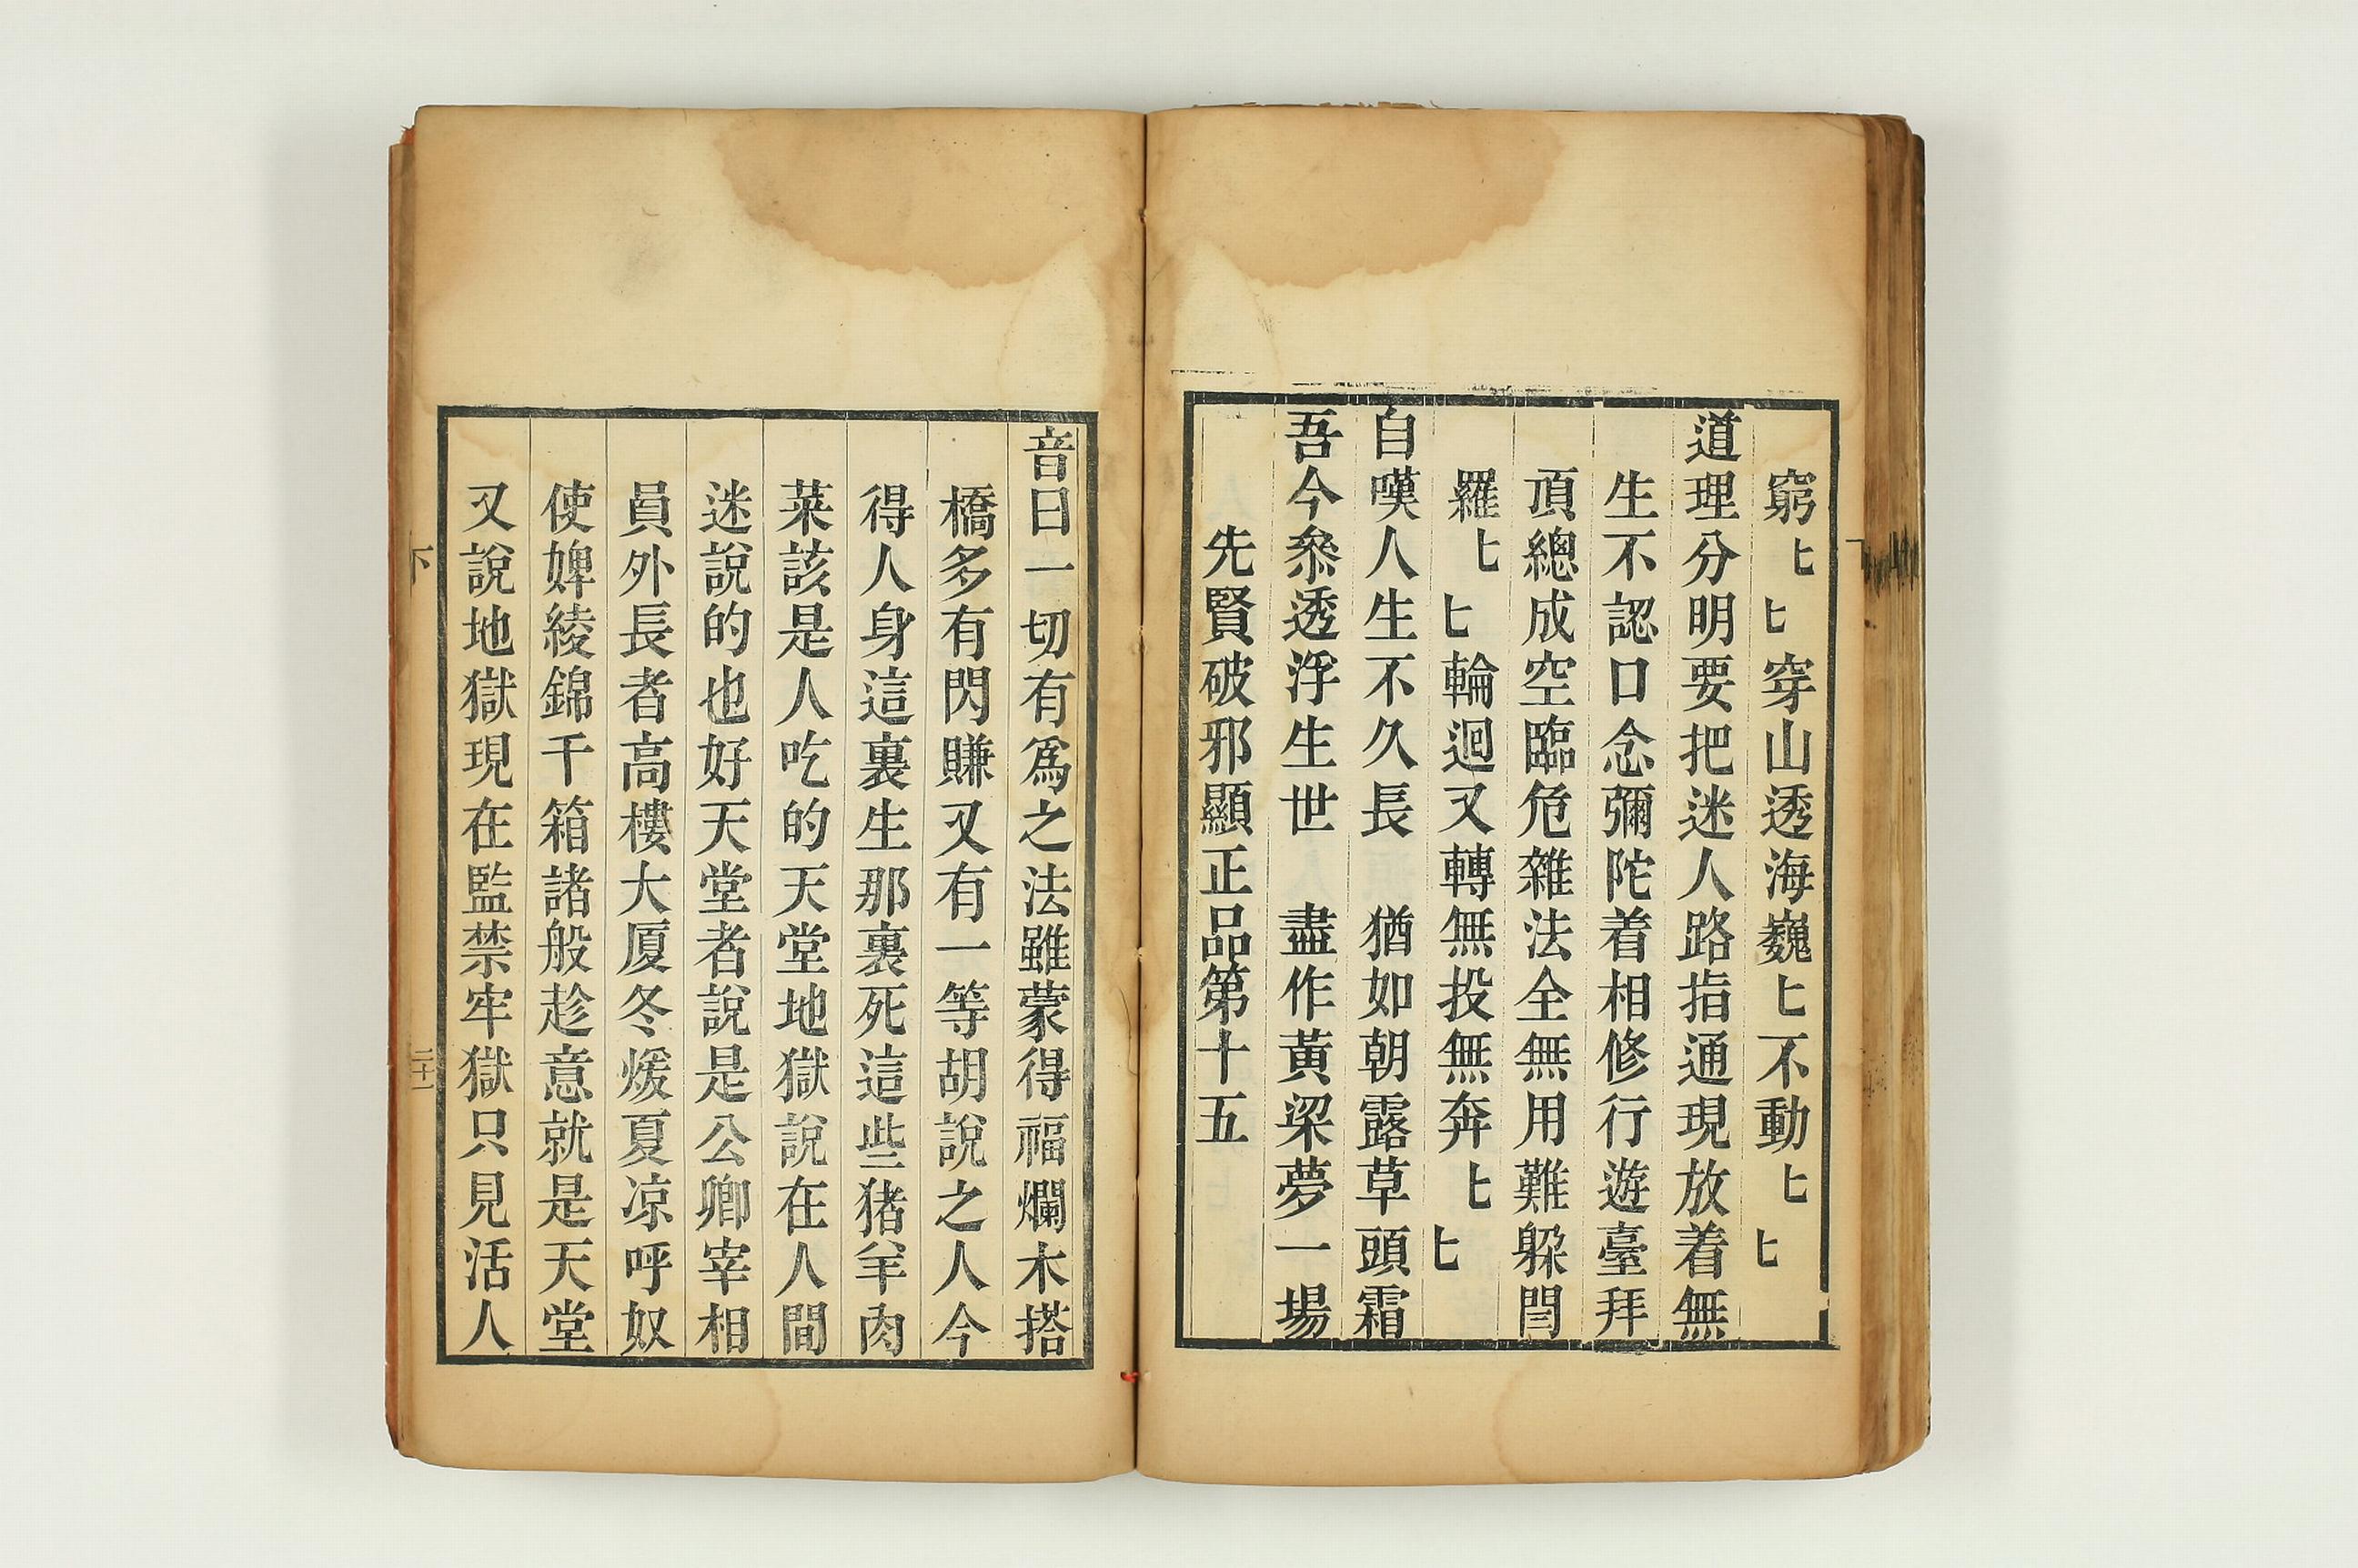 窮匕匕穿山透海巍匕不動匕匕
道理分明要把迷人路指通現放着無
生不認口念彌陀着相修行遊臺拜
頂總成空臨危雜法全無用難躲閆
羅匕匕輪迴又轉無投無奔匕匕
自嘆人生不久長 猶如朝露草頭霜
吾今叅透浮生世 盡作黃粱夢一場
先賢破邪顯正品第十五
音曰一切有爲之法雖蒙得福爛木搭
橋多有閃賺又有一等胡說之人今
得人身這裏生那裏死這些猪羊肉
菜該是人吃的天堂地獄說在人間
迷說的也好天堂者說是公卿宰相
員外長者高樓大厦冬煖夏凉呼奴
使婢綾錦千箱諸般趁意就是天堂
又說地獄現在監禁牢獄只見活人
下 二十一